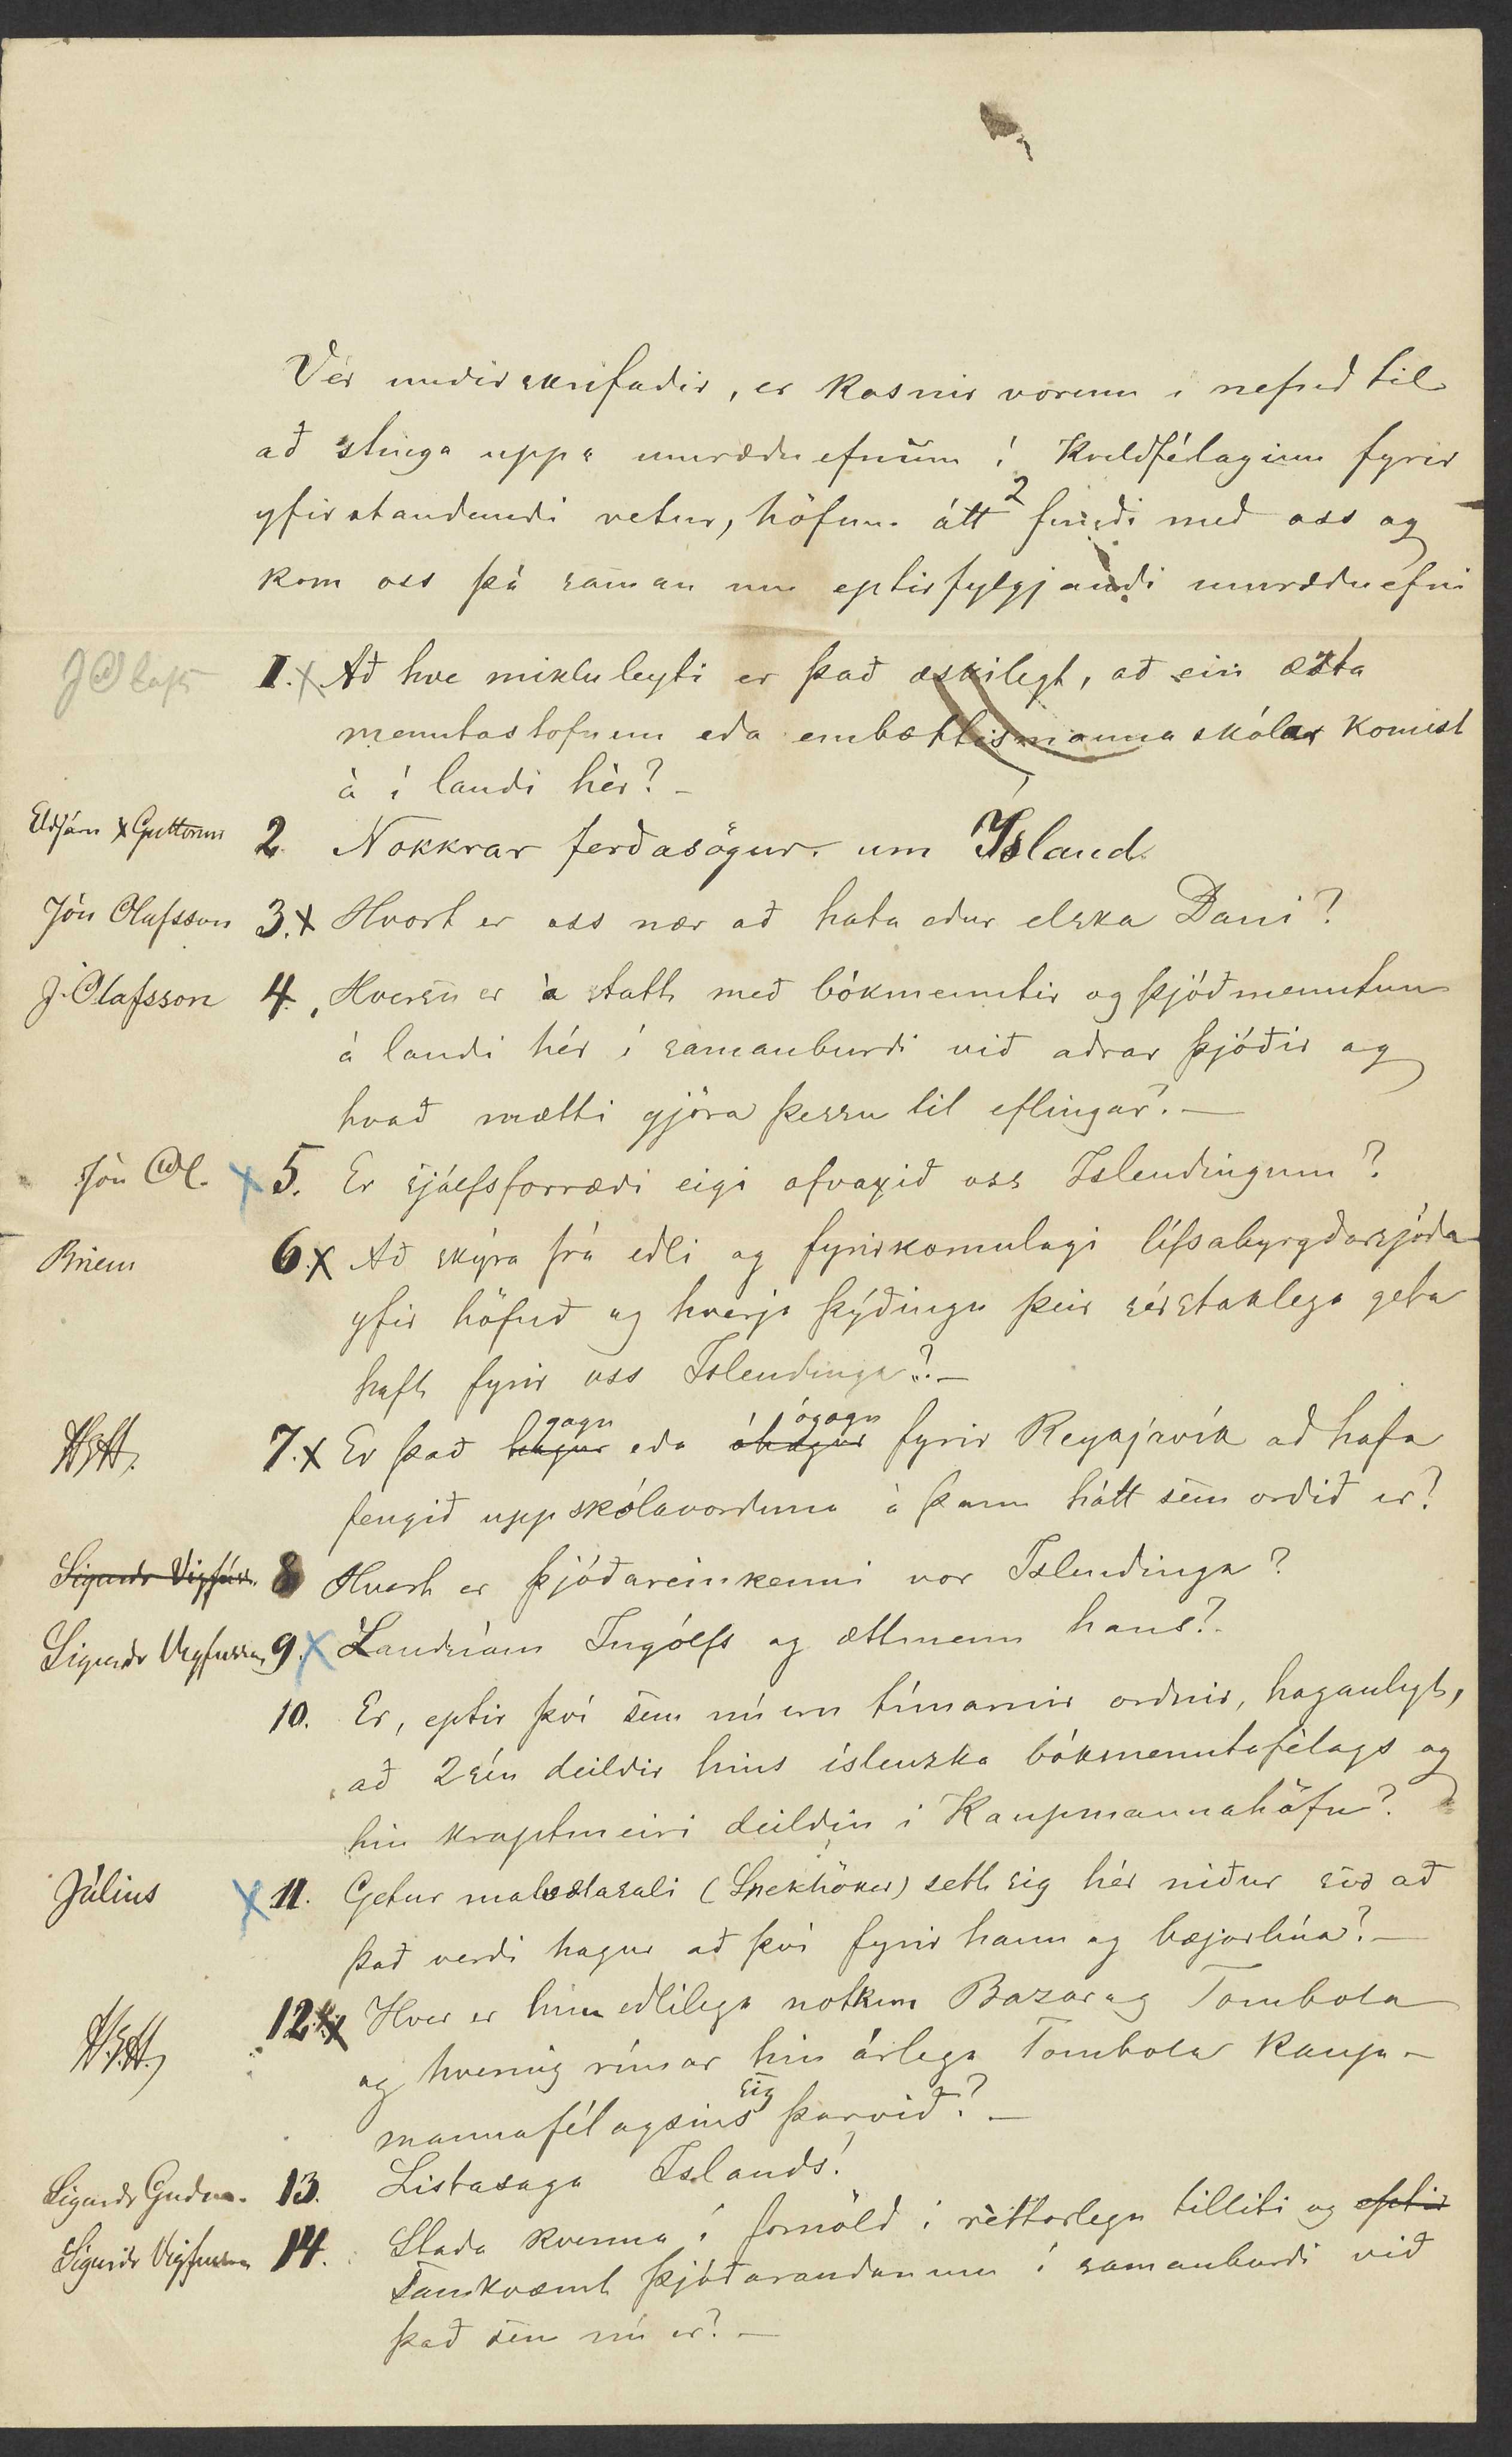 Vér undirskrifaðir, er kosnir vorum i nefnd til
að stinga uppá umræðuefnum í Kveldfélaginu fyrir
yfirstandandi vetur, höfum átt 2 fundi með oss og
kom oss þá saman um eptirfylgjandi umræðuefni
J Olafss 1. x Að hve miklu leyti er það æskilegt, að ein æzta
menntastofnun eða embættismannaskólar komist
á í landi hér? -
Eldjárn x Guttormr 2. Nokkrar ferðasögur um Ísland.
Jón Olafsson 3. x Hvort er oss nær að hata eður elska Dani?
J. Olafsson 4. Hversu er á statt með bókmenntir og þjóðmenntun
á landi hér í samanburði við aðrar þjóðir og
hvað mætti gjöra þessu til eflingar? -
Jón Ol. x 5. Er sjálfsforræði eigi ofvaxið oss Islendingum?
Briem 6. x Að skýra frá eðli og fyrirkomulagi lífsabyrgðarsjóða
yfir höfuð og hverja þýðingu þeir sérstaklega geta
haft fyrir oss Islendinga? -
HEH. 7. x Er það hagur gagn eða óhagur ógagn fyrir Reykjavík að hafa
fengið upp skólavörðuna á þann hátt sem orðið er?
Sigurðr Vigfúss. 8 Hvert er þjóðareinkenni vor Islendinga?
Sigurðr Vigfusson 9. x Landnám Ingólfs og ættmenn hans?
10. Er, eptir því sem nú eru tímarnir orðnir, haganlegt,
að 2 séu deildir hins íslenzka bókmenntafélags og
hin kraptmeiri deildin i Kaupmannahöfn?
Júlíus x 11. Getur matvælasali (Spekhöker) sett sig hér niður svo að
það verði hagur að því fyrir hann og bæjarbúa? -
H.E.H. 12. x Hver er hin eðlilega notkun Bazar og Tombola
og hvernig rímar hin árlega Tombola Kaup-
mannafélagsins sig þarvið? -
Sigurðr Guðm. 13. Listasaga Islands!
Sigurðr Vigfusson 14. Staða kvenna í fornöld i réttarlegu tilliti og eptir
samkvæmt þjóðarandanum í samanburði við
það sem nú er? -